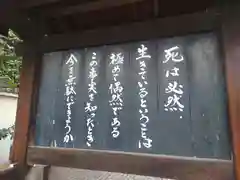 死は必然
生きているということは
極めて偶然である
この事実を知ったとき
今を無駄にできようか